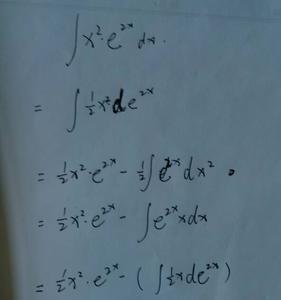 ∫x²·e²ˣdx.
= ∫½x²de²ˣ
= ½x²·e²ˣ - ½∫e²ˣdx²
= ½x²·e²ˣ - ∫e²ˣxdx
= ½x²·e²ˣ - (∫½xde²ˣ)